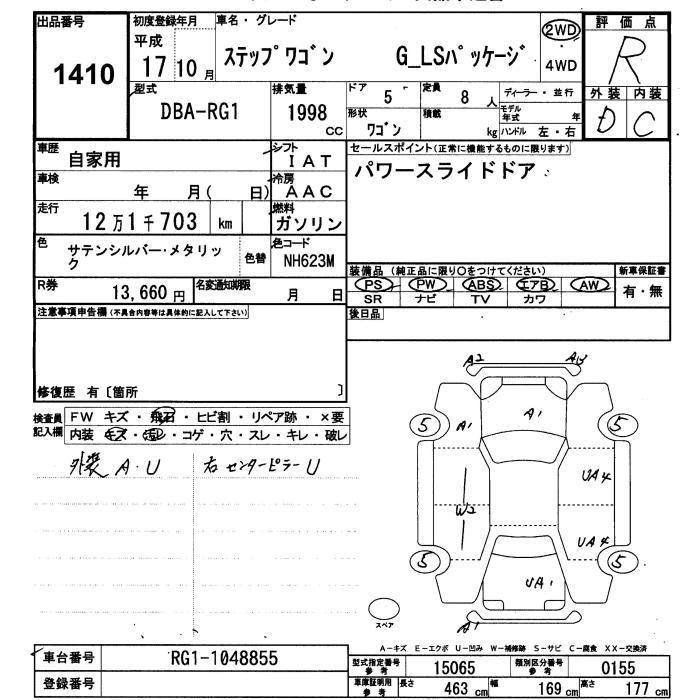 出品番号
1410
初度登録年月
平成
17 10 月
車名・グレード
ステップワゴン G_LSパッケージ
2WD
・
4WD
評価点
R
外装 内装
D C
型式
DBA-RG1
排気量
1998
CC
ドア
5
定員
8 人
ディーラー・並行
形状
ワゴン
積載
kg
モデル年式 年
ハンドル 左・右
車歴
自家用
シフト
I A T
車検
年 月( 日)
冷房
A A C
走行
12万1千703 km
燃料
ガソリン
色
サテンシルバー・メタリック
色替
色コード
NH623M
R券
13,660 円
名変通知期限
月 日
セールスポイント(正常に機能するものに限ります)
パワースライドドア
装備品 (純正品に限り○をつけてください)
新車保証書
PS PW ABS エアB AW
SR ナビ TV カワ
有・無
後日品
注意事項申告欄(不具合内容等は具体的に記入して下さい)
修復歴 有〔箇所 〕
検査員
記入欄
FW キズ・飛石・ヒビ割・リペア跡・×要
内装 キズ・汚レ・コゲ・穴・スレ・キレ・破レ
外装 A・U
右センターピラーU
A2
A1
5 A1 5
UA4
W2
UA4
5 5
UA1
A1
スペア
A-キズ E-エクボ U-凹み W-補修跡 S-サビ C-腐食 XX-交換済
車台番号
RG1-1048855
登録番号
型式指定番号
参考
15065
類別区分番号
参考
0155
車庫証明用
参考
長さ
463 cm
幅
169 cm
高さ
177 cm